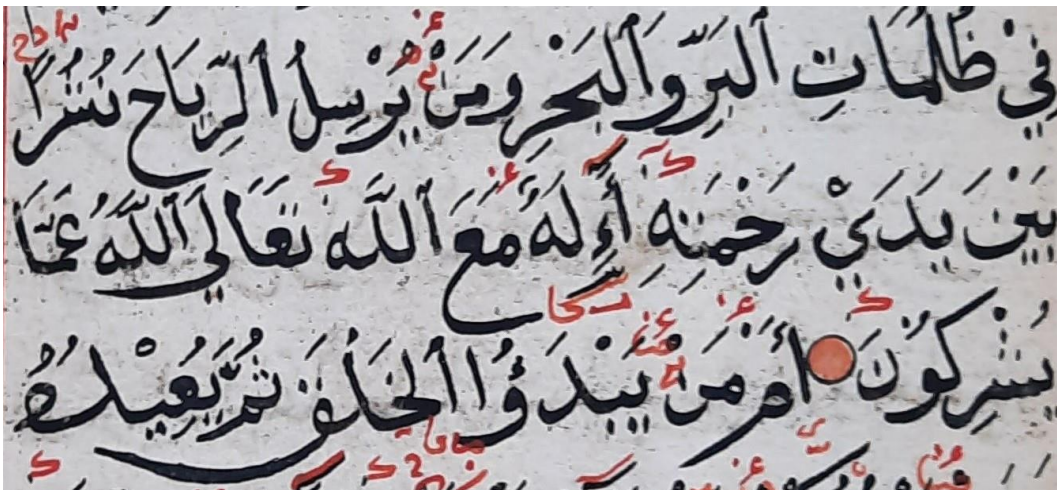 فِيْ ظُلُمَاتِ الْبَرِّ وَالْبَحْرِ وَمَنْ يُرْسِلُ الرِّيَاحَ نُشُرًا
بَيْنَ يَدَيْ رَحْمَتِهِ أَءِلَهٌ مَعَ اللَّهِ تَعَالَى اللَّهُ عَمَّا
يُشْرِكُوْنَ أَمَّنْ يَبْدَؤُا الْخَلْقَ ثُمَّ يُعِيْدُهُ